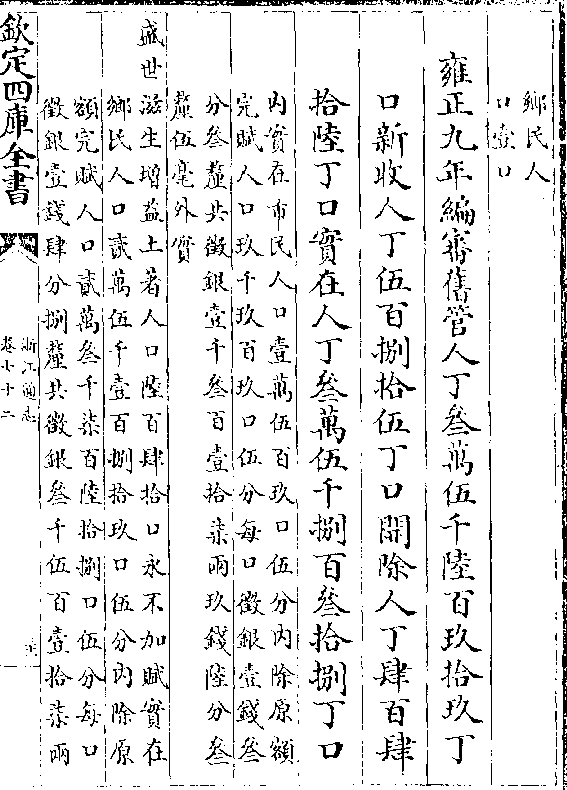 鄉民人
口壹口
雍正九年編審舊管人丁叄萬伍千陸百玖拾玖丁
口新收人丁伍百捌拾伍丁口開除人丁肆百肆
拾陸丁口實在人丁叄萬伍千捌百叄拾捌丁口
内實在市民人口壹萬伍百玖口伍分内除原額
完賦人口玖千玖百玖口伍分每口徵銀壹錢叄
分叄釐共徵銀壹千叄百壹拾柒兩玖錢陸分叄
釐伍毫外實
盛世滋生增益土著人口陸百肆拾口永不加賦實在
鄉民人口貳萬伍千壹百捌拾玖口伍分内除原
額完賦人口貳萬叄千柒百陸拾捌口伍分每口
徵銀壹錢肆分捌釐共徵銀叄千伍百壹拾柒兩
欽定四庫全書
浙江通志
卷七十二